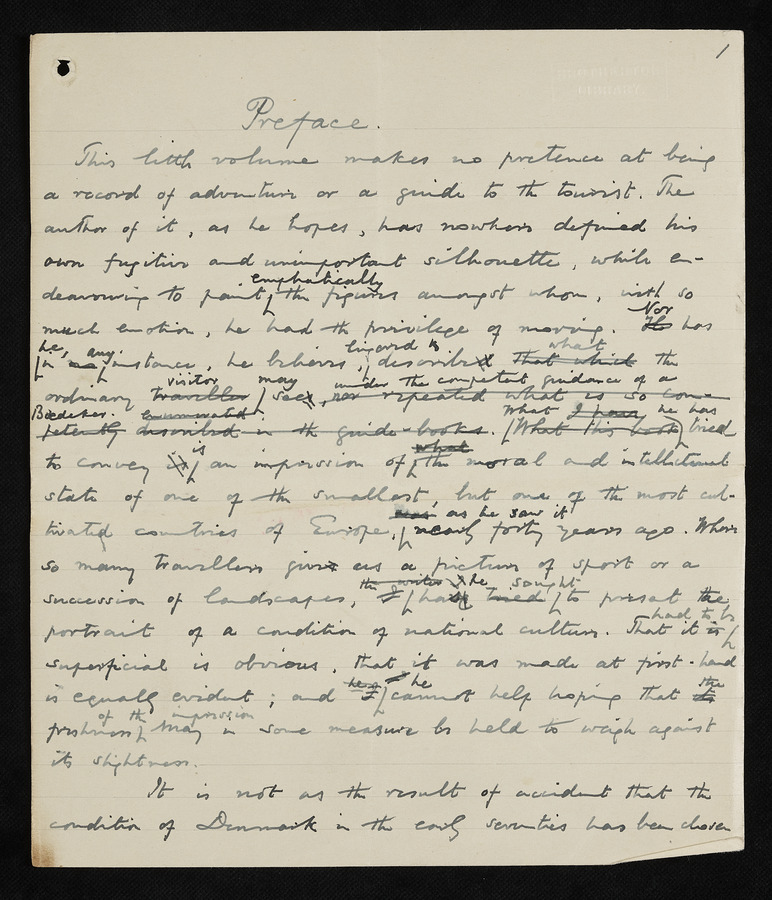 1
Preface.
This little volume makes no pretence at being
a record of adventure or a guide to the tourist. The
author of it, as he hopes, has nowhere defined his
own fugitive and unimportant silhouette, while en-
deavouring to paint emphatically the figures amongst whom, with so
much emotion, he had the privilege of moving. He Nor has
he, in no any instance, he believes, lingered to described that which what the
ordinary traveller visitor may sees, nor repeated what is so com- under the competent guidance of a
Baedeker. petently described enumerated in the guide-books. What this book What I have he has tried
to convey is an impression of what the moral and intellectual
state of one of the smallest, but one of the most cul-
tivated countries of Europe, was as he saw it nearly forty years ago. Where
so many travellers give us a picture of sport or a
succession of landscapes, I the writer he has tried sought to present the
portrait of a condition of national culture. That it is had to be
superficial is obvious, that it was made at first-hand
is equally evident; and I he cannot help hoping that its the
freshness of the impression may in some measure be held to weigh against
its slightness.
It is not as the result of accident that the
condition of Denmark in the early seventies has been chosen